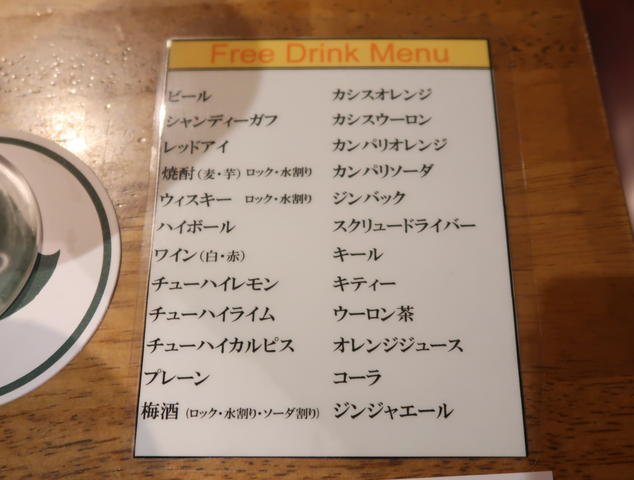 Free Drink Menu
ビール
シャンディーガフ
レッドアイ
焼酎(麦・芋) ロック・水割り
ウィスキー ロック・水割り
ハイボール
ワイン(白・赤)
チューハイレモン
チューハイライム
チューハイカルピス
プレーン
梅酒 (ロック・水割り・ソーダ割り)
カシスオレンジ
カシスウーロン
カンパリオレンジ
カンパリソーダ
ジンバック
スクリュードライバー
キール
キティー
ウーロン茶
オレンジジュース
コーラ
ジンジャエール